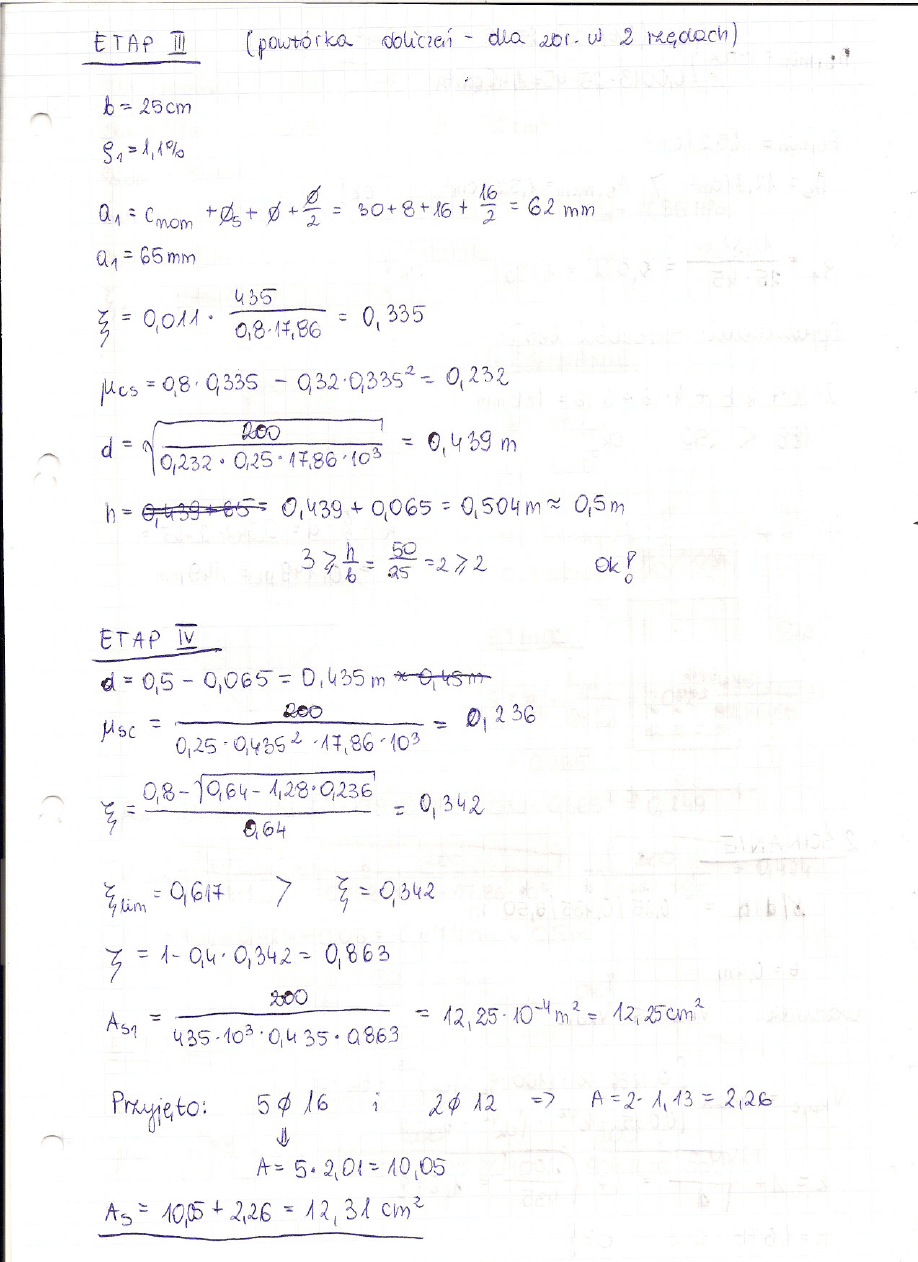 ETAP III (powtórka obliczeń - dla zbr. w 2 rzędach)
b = 25cm
ρ₁ = 1,1%
a₁ = c_nom + ø_s + ø + ø/2 = 30 + 8 + 16 + 16/2 = 62 mm
a₁ = 65mm
ξ = 0,011 · 435/(0,8·17,86) = 0,335
μ_cs = 0,8 · 0,335 - 0,32·0,335² = 0,232
d = √(200/(0,232 · 0,25 · 17,86 · 10³)) = 0,439 m
h = 0,439 + 65 = 0,439 + 0,065 = 0,504 m ≈ 0,5m
3 ⩾ h/b = 50/25 = 2 ⩾ 2 Ok!
ETAP IV
d = 0,5 - 0,065 = 0,435 m ≈ 0,45 m
μ_sc = 200/(0,25 · 0,435² · 17,86 · 10³) = 0,236
ξ = (0,8 - √(0,64 - 1,28·0,236))/0,64 = 0,342
ξ_lim = 0,617 > ξ = 0,342
ζ = 1 - 0,4 · 0,342 = 0,863
A_s1 = 200/(435·10³ · 0,435 · 0,863) = 12,25·10⁻⁴ m² = 12,25cm²
Przyjęto: 5 ø 16 i 2 ø 12 => A = 2 · 1,13 = 2,26
⇓
A = 5 · 2,01 = 10,05
A_s = 10,05 + 2,26 = 12,31 cm²